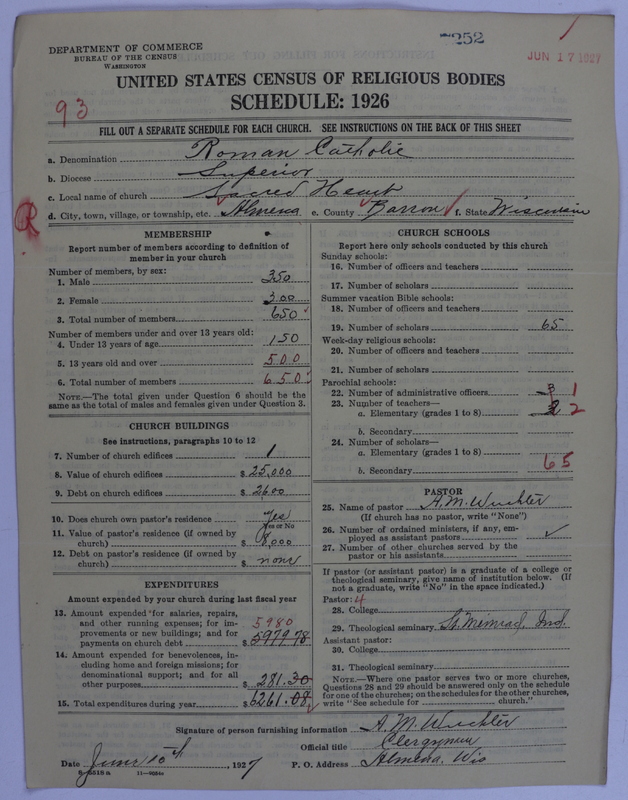 DEPARTMENT OF COMMERCE
BUREAU OF THE CENSUS
WASHINGTON
252
JUN 17 1927
UNITED STATES CENSUS OF RELIGIOUS BODIES
SCHEDULE: 1926
93
FILL OUT A SEPARATE SCHEDULE FOR EACH CHURCH. SEE INSTRUCTIONS ON THE BACK OF THIS SHEET
a. Denomination Roman Catholic
b. Diocese Superior
c. Local name of church Sacred Heart
d. City, town, village, or township, etc. Almena e. County Barron f. State Wisconsin
R
MEMBERSHIP
Report number of members according to definition of
member in your church
Number of members, by sex:
1. Male 350
2. Female 300
3. Total number of members 650
Number of members under and over 13 years old:
4. Under 13 years of age 150
5. 13 years old and over 500
6. Total number of members 650
NOTE.—The total given under Question 6 should be the
same as the total of males and females given under Question 3.
CHURCH BUILDINGS
See instructions, paragraphs 10 to 12
7. Number of church edifices 1
8. Value of church edifices $ 25,000
9. Debt on church edifices $ 2600
10. Does church own pastor's residence yes
Yes or No
11. Value of pastor's residence (if owned by
church) $ 8,000
12. Debt on pastor's residence (if owned by
church) $ none
EXPENDITURES
Amount expended by your church during last fiscal year
13. Amount expended for salaries, repairs,
and other running expenses; for im-
provements or new buildings; and for
payments on church debt $ 5979.78
5980
14. Amount expended for benevolences, in-
cluding home and foreign missions; for
denominational support; and for all
other purposes $ 281.30
15. Total expenditures during year $ 6261.08
CHURCH SCHOOLS
Report here only schools conducted by this church
Sunday schools:
16. Number of officers and teachers
17. Number of scholars
Summer vacation Bible schools:
18. Number of officers and teachers
19. Number of scholars 65
Week-day religious schools:
20. Number of officers and teachers
21. Number of scholars
Parochial schools:
22. Number of administrative officers 3 1
23. Number of teachers—
a. Elementary (grades 1 to 8) 2
b. Secondary
24. Number of scholars—
a. Elementary (grades 1 to 8) 65
b. Secondary
PASTOR
25. Name of pastor A. M.
(If church has no pastor, write "None")
26. Number of ordained ministers, if any, em-
ployed as assistant pastors
27. Number of other churches served by the
pastor or his assistants
If pastor (or assistant pastor) is a graduate of a college or
theological seminary, give name of institution below. (If
not a graduate, write "No" in the space indicated.)
Pastor: 4
28. College
29. Theological seminary St. Meinrad, Ind.
Assistant pastor:
30. College
31. Theological seminary
NOTE.—Where one pastor serves two or more churches,
Questions 28 and 29 should be answered only on the schedule
for one of the churches; on the schedules for the other churches,
write "See schedule for church."
Signature of person furnishing information A. M.
Official title Clergyman
Date June 10th, 1927 P. O. Address Almena, Wis